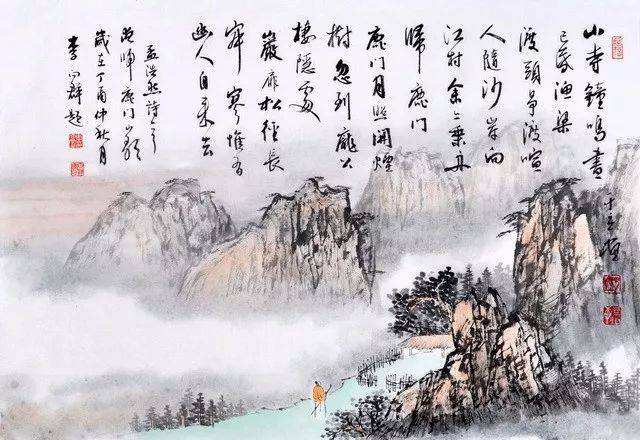 山寺鐘鳴晝
已昏漁梁
渡頭爭渡喧
人隨沙岸向
江村余亦乘舟
歸鹿門
鹿門月照開煙
樹忽到龐公
棲隱處
巖扉松徑長
寂寥惟有
幽人自來去
孟浩然詩之
夜歸鹿門歌
歲在丁酉仲秋月
李 題